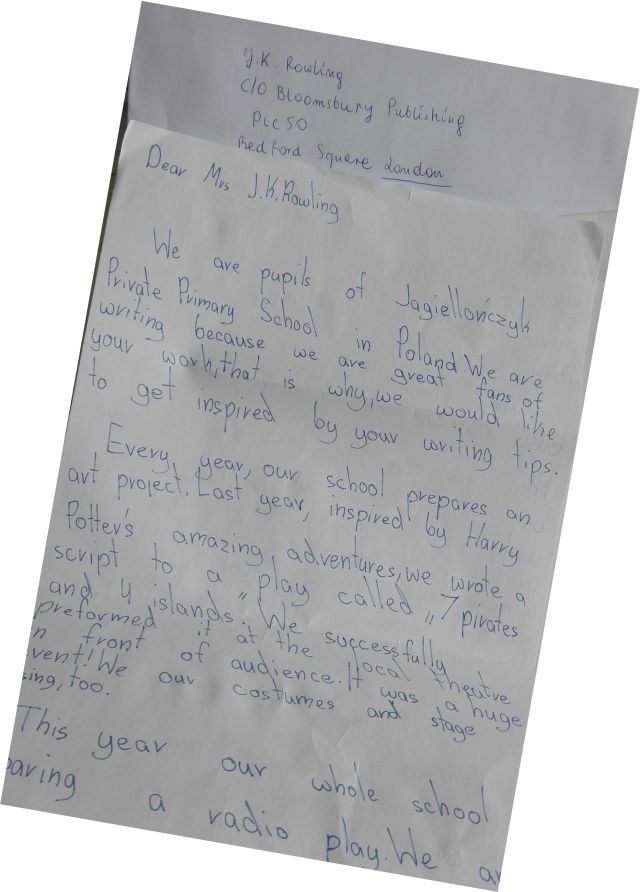 J.K. Rowling
C/O Bloomsbury Publishing
PLC 50
Bedford Square London
Dear Mrs J.K.Rowling
We are pupils of Jagiellończyk
Private Primary School in Poland.We are
writing because we are great fans of
your work,that is why,we would like
to get inspired by your writing tips.
Every year, our school prepares an
art project. Last year, inspired by Harry
Potter's amazing adventures,we wrote a
script to a play called „7 pirates
and 4 islands." We successfully
preformed it at the local theatre
n front of audience.It was a huge
vent!We our costumes and stage
ing, too.
This year our whole school
paring a radio play.We a